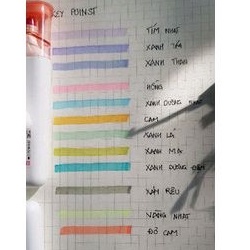 KEY POINST
TÍM NHẠT
XANH TÍM
XANH THAN
HỒNG
XANH DƯƠNG NHẠT
CAM
XANH LÁ
XANH MẠ
XANH DƯƠNG ĐẬM
XÁM RÊU
VÀNG NHẠT
ĐỎ CAM